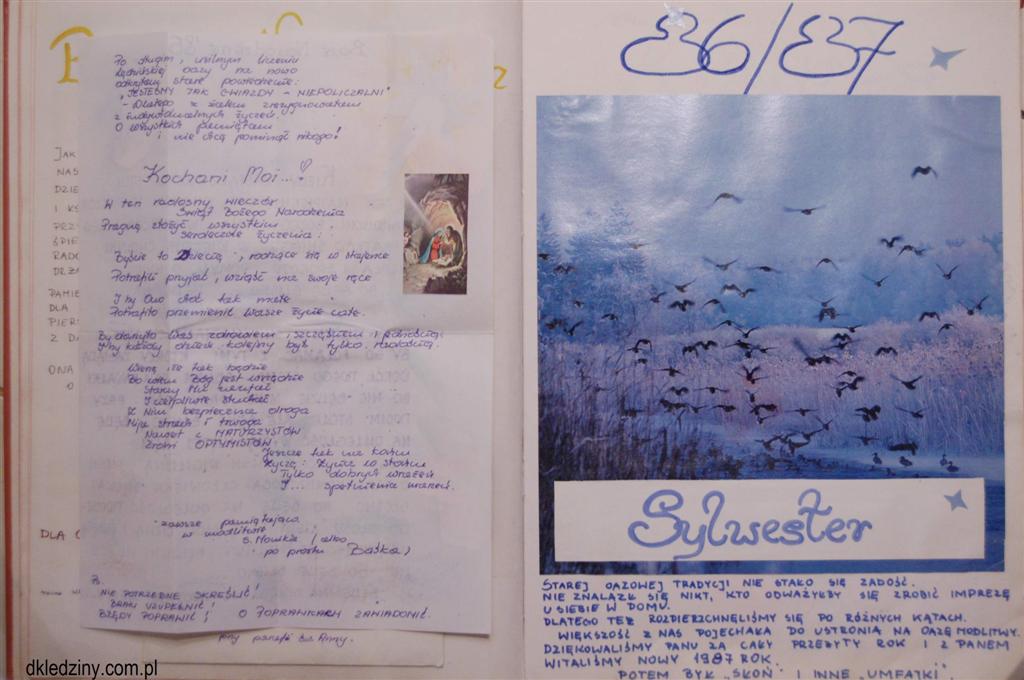 Po długim, usilnym liczeniu
oazy na nowo
odkryłam stare powiedzenie:
"JESTEŚMY JAK GWIAZDY - NIEPOLICZALNI"
- Dlatego z żalem zrezygnowałam
z indywidualnych życzeń.
O wszystkich pamiętam
i nie chcę pominąć nikogo!
Kochani Moi...!
W ten radosny wieczór
Świąt Bożego Narodzenia
Pragnę złożyć wszystkim
serdeczne życzenia:
Byście to Dziecię, rodzące się w stajence
Potrafili przyjąć, wziąść na swoje ręce
I by Ono choć tak małe
Potrafiło przemienić Wasze życie całe.
By darzyło Was zdrowiem, szczęściem i jednością
I by każdy dzień kolejny był tylko radością.
Wiem, że tak będzie
Bo wiem Bóg jest wszędzie
Starczy Mu zaufać
I cierpliwie słuchać
Z Nim bezpieczna droga
Mija strach i trwoga
Nawet z MATURZYSTÓW
Zrobi OPTYMISTÓW
Jeszcze tak na końcu
Życzę: Życia w słońcu
Tylko dobrych wrażeń
I... spełnienia marzeń.
zawsze pamiętająca
w modlitwie
s. (albo
po prostu Baśka)
Ps.
NIE POTRZEBNE SKREŚLIĆ!
BRAKI UZUPEŁNIĆ!
BŁĘDY POPRAWIĆ! O POPRAWKACH ZAWIADOMIĆ.
JAK
NAS
DZIE
I KS
PRZY
ŚPIE
RADO
DRZ
PAMIĘ
DLA
PIER
Z DA
ONA
O
DLA
86/87
Sylwester
STAREJ OAZOWEJ TRADYCJI NIE STAŁO SIĘ ZADOŚĆ.
NIE ZNALAZŁ SIĘ NIKT, KTO ODWAŻYŁBY SIĘ ZROBIĆ IMPREZĘ
U SIEBIE W DOMU.
DLATEGO TEŻ ROZPIERZCHNĘLIŚMY SIĘ PO RÓŻNYCH KĄTACH.
WIĘKSZOŚĆ Z NAS POJECHAŁA DO USTRONIA NA OAZĘ MODLITWY.
DZIĘKOWALIŚMY PANU ZA CAŁY PRZEŻYTY ROK I Z PANEM
WITALIŚMY NOWY 1987 ROK.
POTEM BYŁ "SŁOŃ" I INNE "UMFAJKI".
dkledziny.com.pl